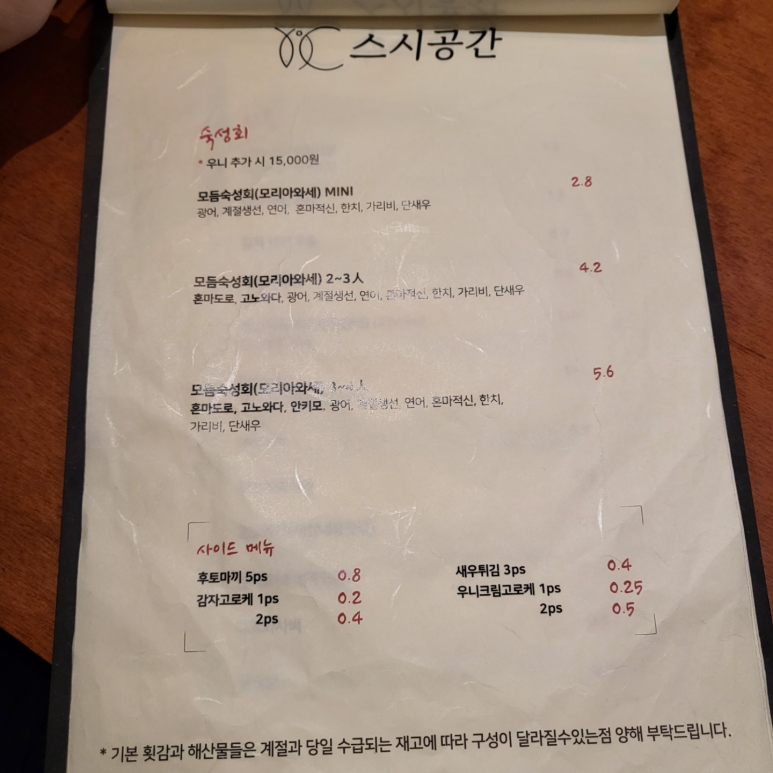 스시공간
숙성회
* 우니 추가 시 15,000원
모듬숙성회(모리아와세) MINI 2.8
광어, 계절생선, 연어, 혼마적신, 한치, 가리비, 단새우
모듬숙성회(모리아와세) 2~3人 4.2
혼마도로, 고노와다, 광어, 계절생선, 연어, 혼마적신, 한치, 가리비, 단새우
모듬숙성회(모리아와세) 5.6
혼마도로, 고노와다, 안키모, 광어, 계절생선, 연어, 혼마적신, 한치,
가리비, 단새우
사이드 메뉴
후토마끼 5ps 0.8 새우튀김 3ps 0.4
감자고로케 1ps 0.2 우니크림고로케 1ps 0.25
2ps 0.4 2ps 0.5
* 기본 횟감과 해산물들은 계절과 당일 수급되는 재고에 따라 구성이 달라질수있는점 양해 부탁드립니다.